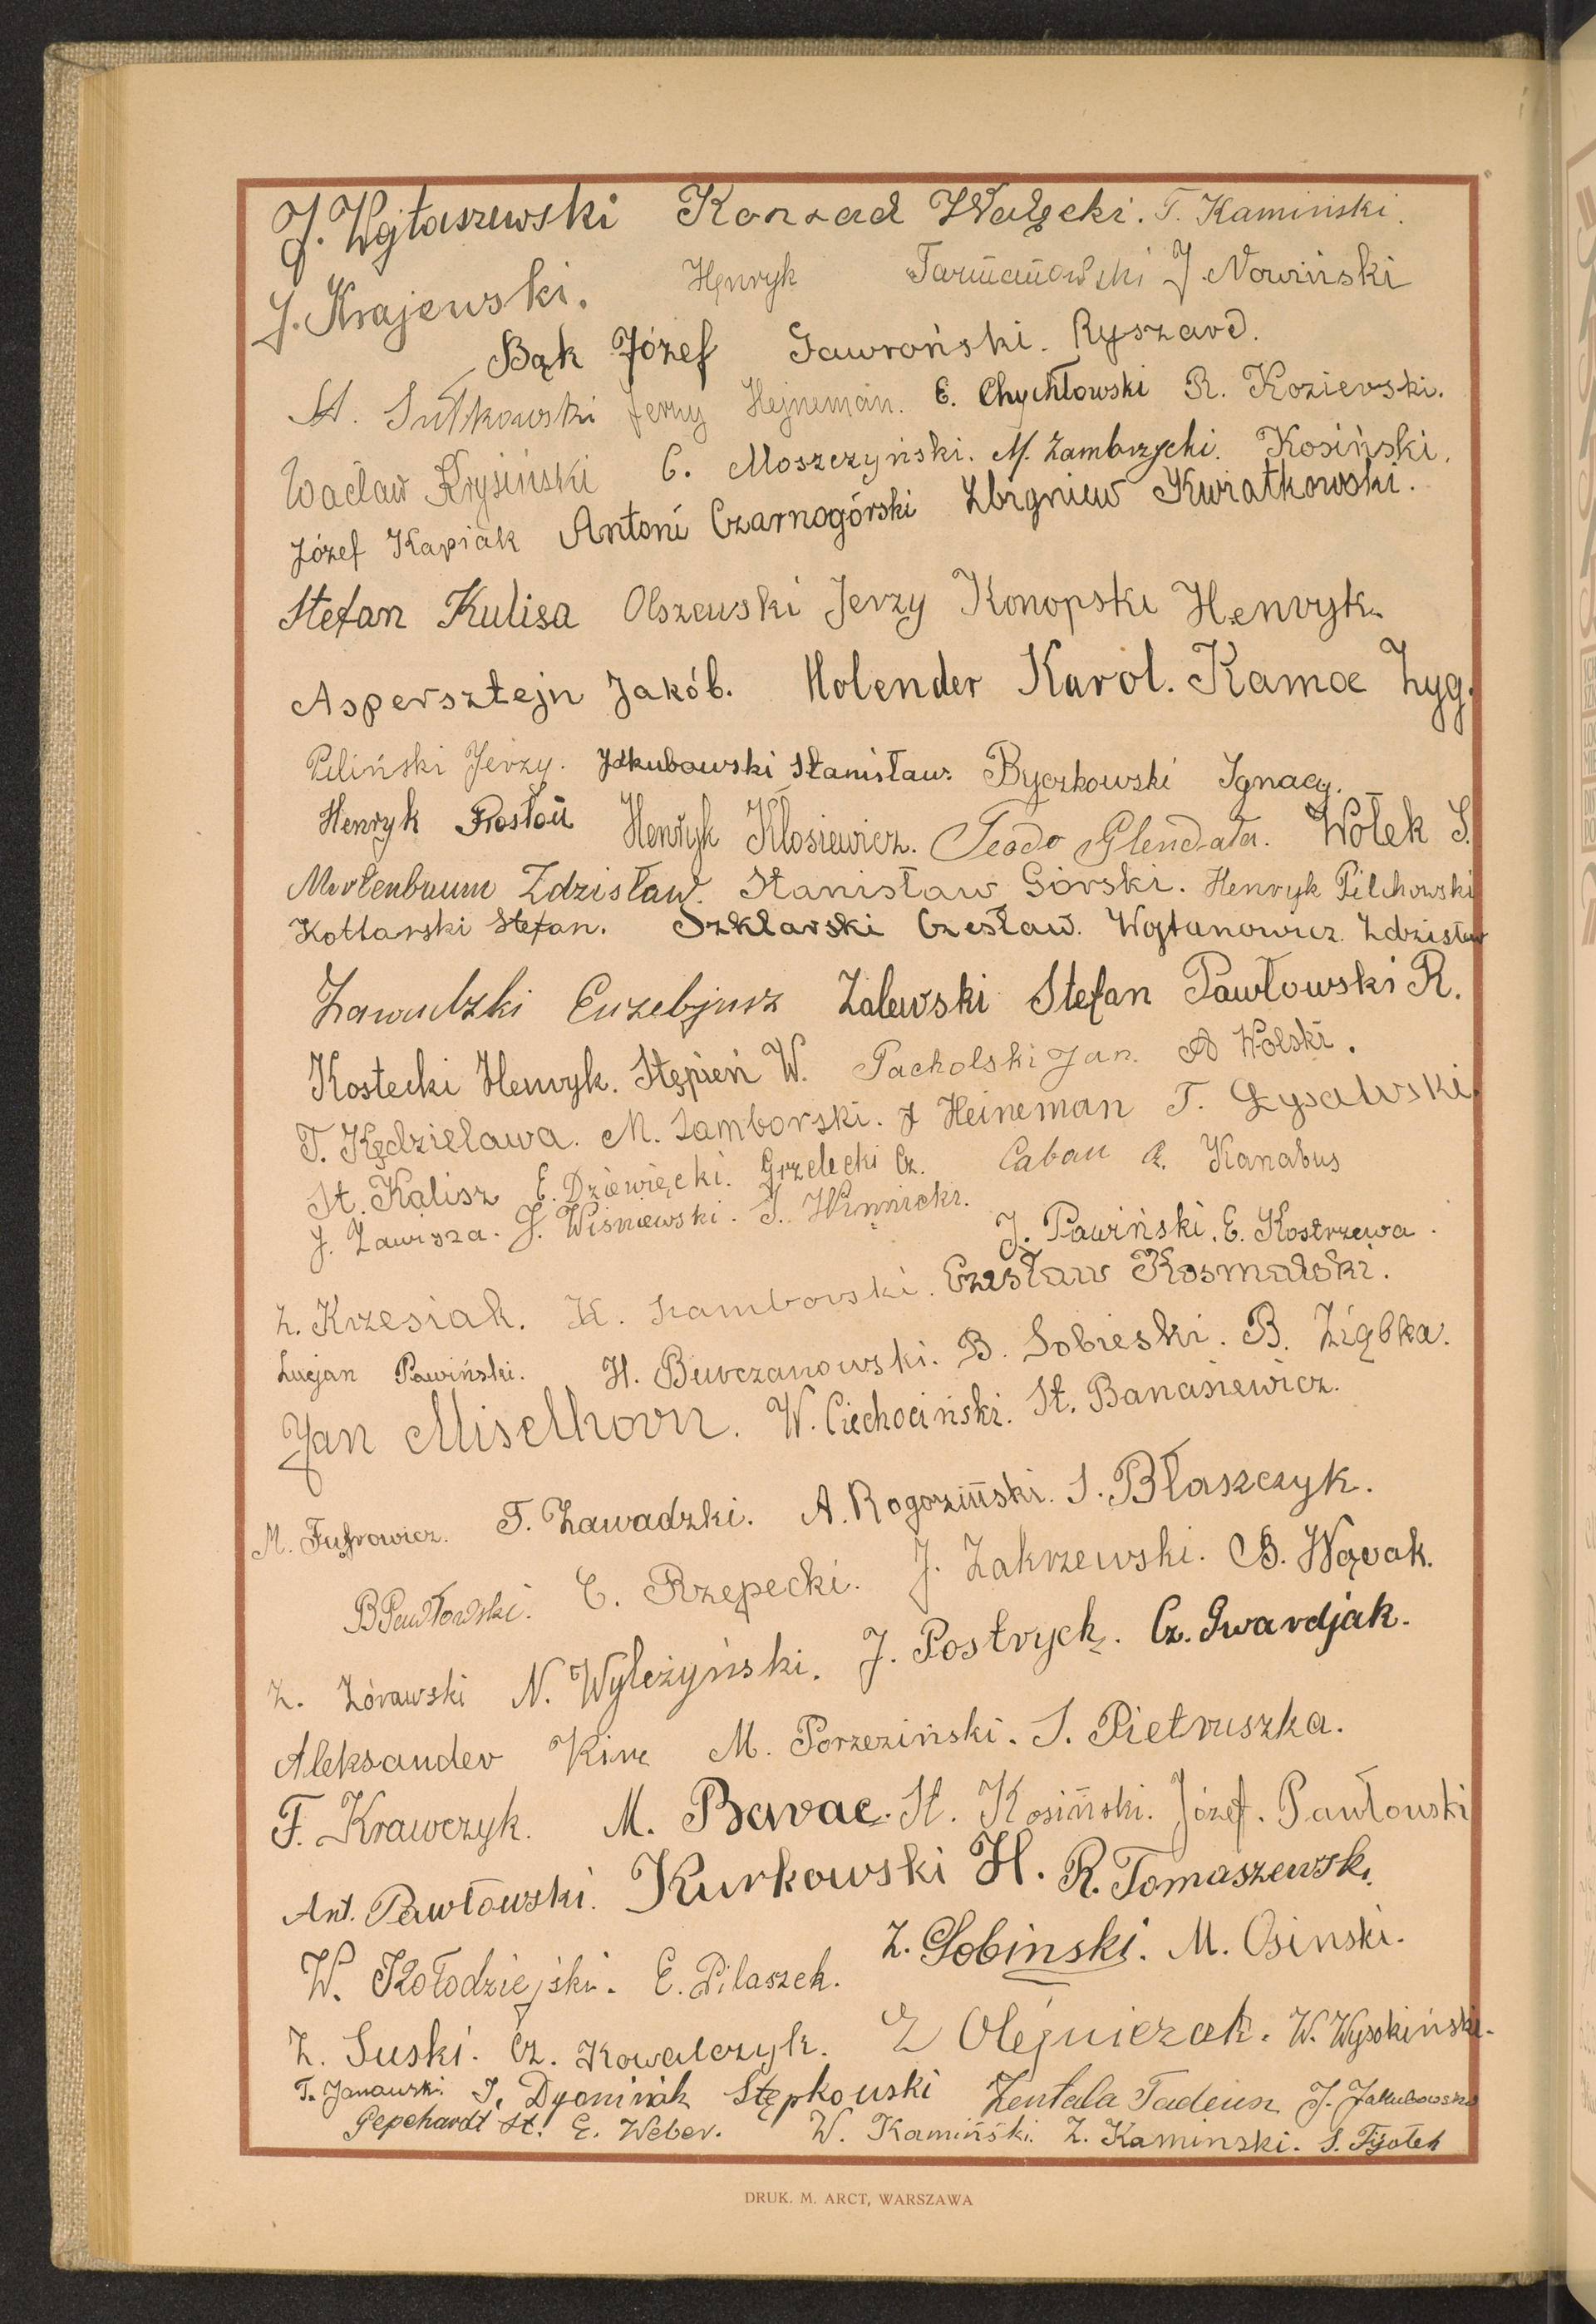 J. Wojtaszewski Konrad Wałęcki. T. Kamiński.
J. Krajewski. Henryk J. Nowiński
Bąk Józef Gawroński. Ryszard.
St. Sutkowski Jerzy Hejneman. E. Chychłowski R. Kozievski.
Wacław Krysiński C. Moszczyński. M. Zambrzycki. Kosiński.
Józef Kapiak Antoni Czarnogórski Zbigniew Kwiatkowski.
Stefan Kulisa Olszewski Jerzy Konopski Henryk.
Aspersztejn Jakób. Holender Karol. Zyg.
Piliński Jerzy. Jakubowski Stanisław. Byczkowski Ignacy.
Henryk Prostoń Henryk Kłosiewicz. Wołek S.
Mortenbaum Zdzisław. Stanisław Górski. Henryk Pilchowski
Kotlarski Stefan. Szklarski Czesław. Wojtanowicz. Zdzisław
Zawadzki Euzebjusz Zalewski Stefan Pawłowski R.
Kostecki Henryk. Stępień W. Pacholski Jan. A Wolski.
T. Kędzielawa. M. Zamborski. J Heineman T. Łysawski.
St. Kalisz E. Dziewięcki. Grzelecki Cz. Caban A. Kanabus
J. Zawisza. J. Wiśniewski. J. Winnicki.
J. Pawiński. E. Kostrzewa.
Z. Krzesiak. K. Zamborski. Czesław Kosmalski.
Lucjan Pawiński. H. Burczanowski. B. Sobieski. B. Ziąbka.
Jan Miselhorn. W. Ciechociński. St. Banasiewicz.
M. T. Zawadzki. A. Rogoziński. S. Błaszczyk.
B Pawłowski. C. Rzepecki. J. Zakrzewski. B. Wąvak.
Z. Zórawski N. Wyleżyński. J. Postrych. Cz. Gwardjak.
Aleksander M. Porzeziński. S. Pietruszka.
F. Krawczyk. M. Barac. St. Kosiński. Józef. Pawłowski
Ant. Pawłowski. Kurkowski H. R. Tomaszewski.
W. Kołodziejski. E. Pilaszek. Z. Sobinski. M. Osinski.
Z. Suski. Cz. Kowalczyk. Z Olejniczak. W. Wysokiński.
T. Janowski. J. Dyoniziak Stępkowski Zentala Tadeusz J. Jakubowski
Gepchardt St. E. Weber. W. Kamiński. Z. Kaminski. S. Fijołek
DRUK. M. ARCT, WARSZAWA